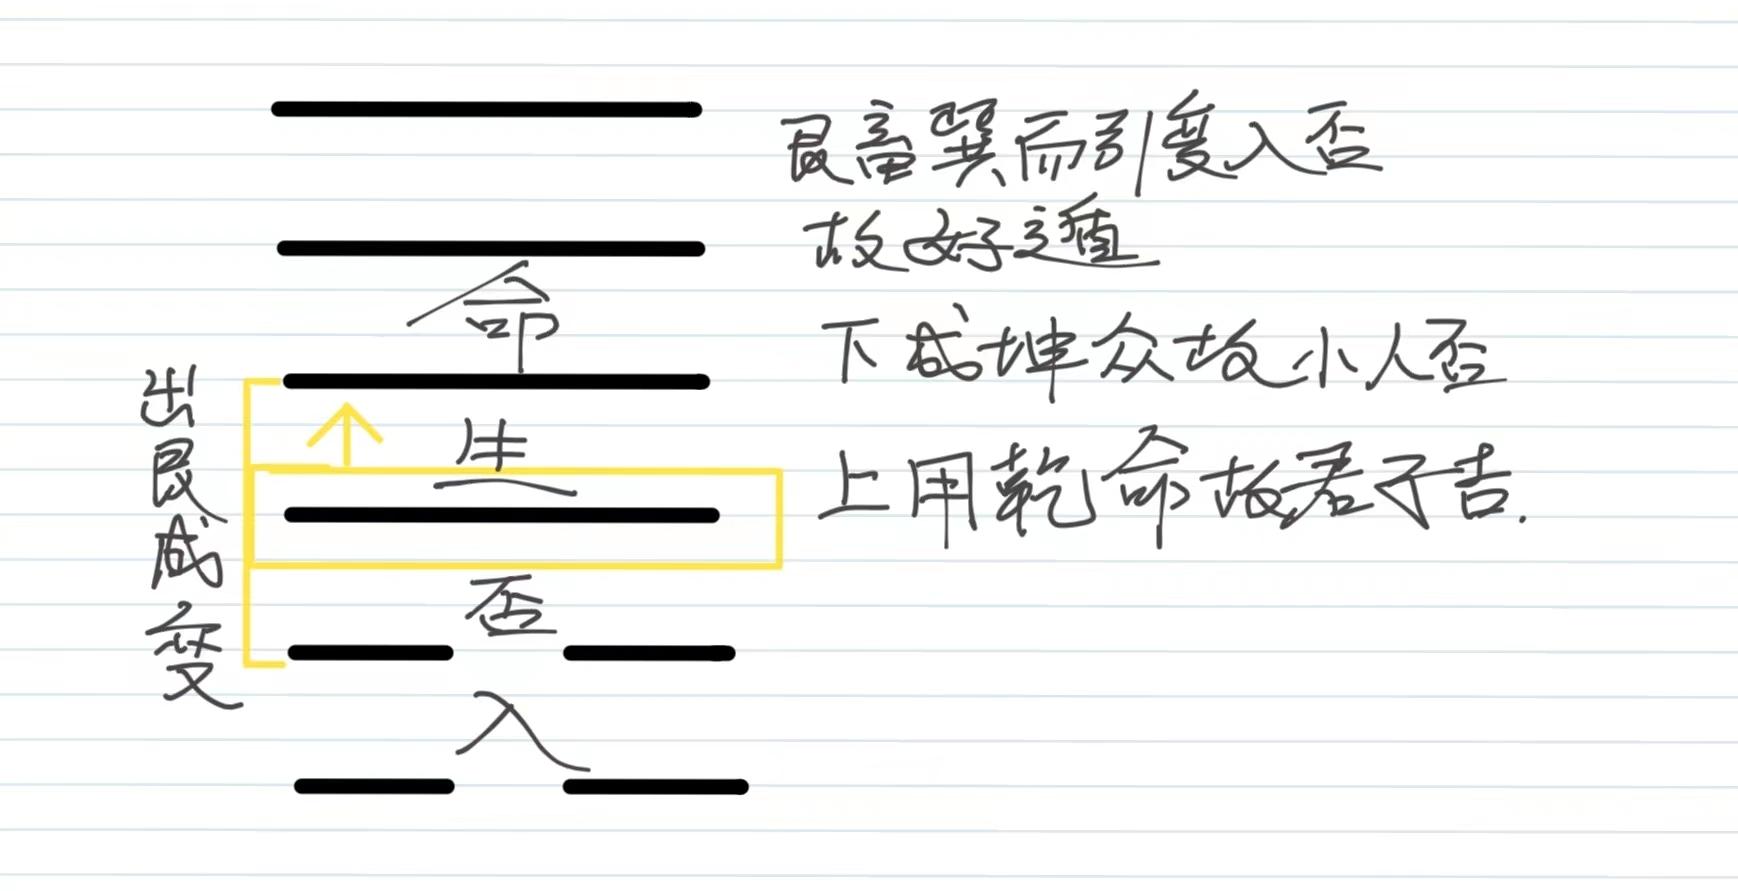 艮畜巽而引度入否
故好遁
下成坤众故小人否
上用乾命故君子吉.
命
生
否
入
出艮成变